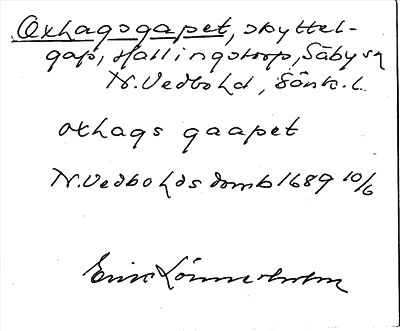 Oxhagsgapet, skyttel-
gap, Hallingstorp, Säby sn
N. Vedbohd, Jönk. l.
oxhags gaapet
N. Vedbohds domb 1689 10/6
Erik Lönnerholm